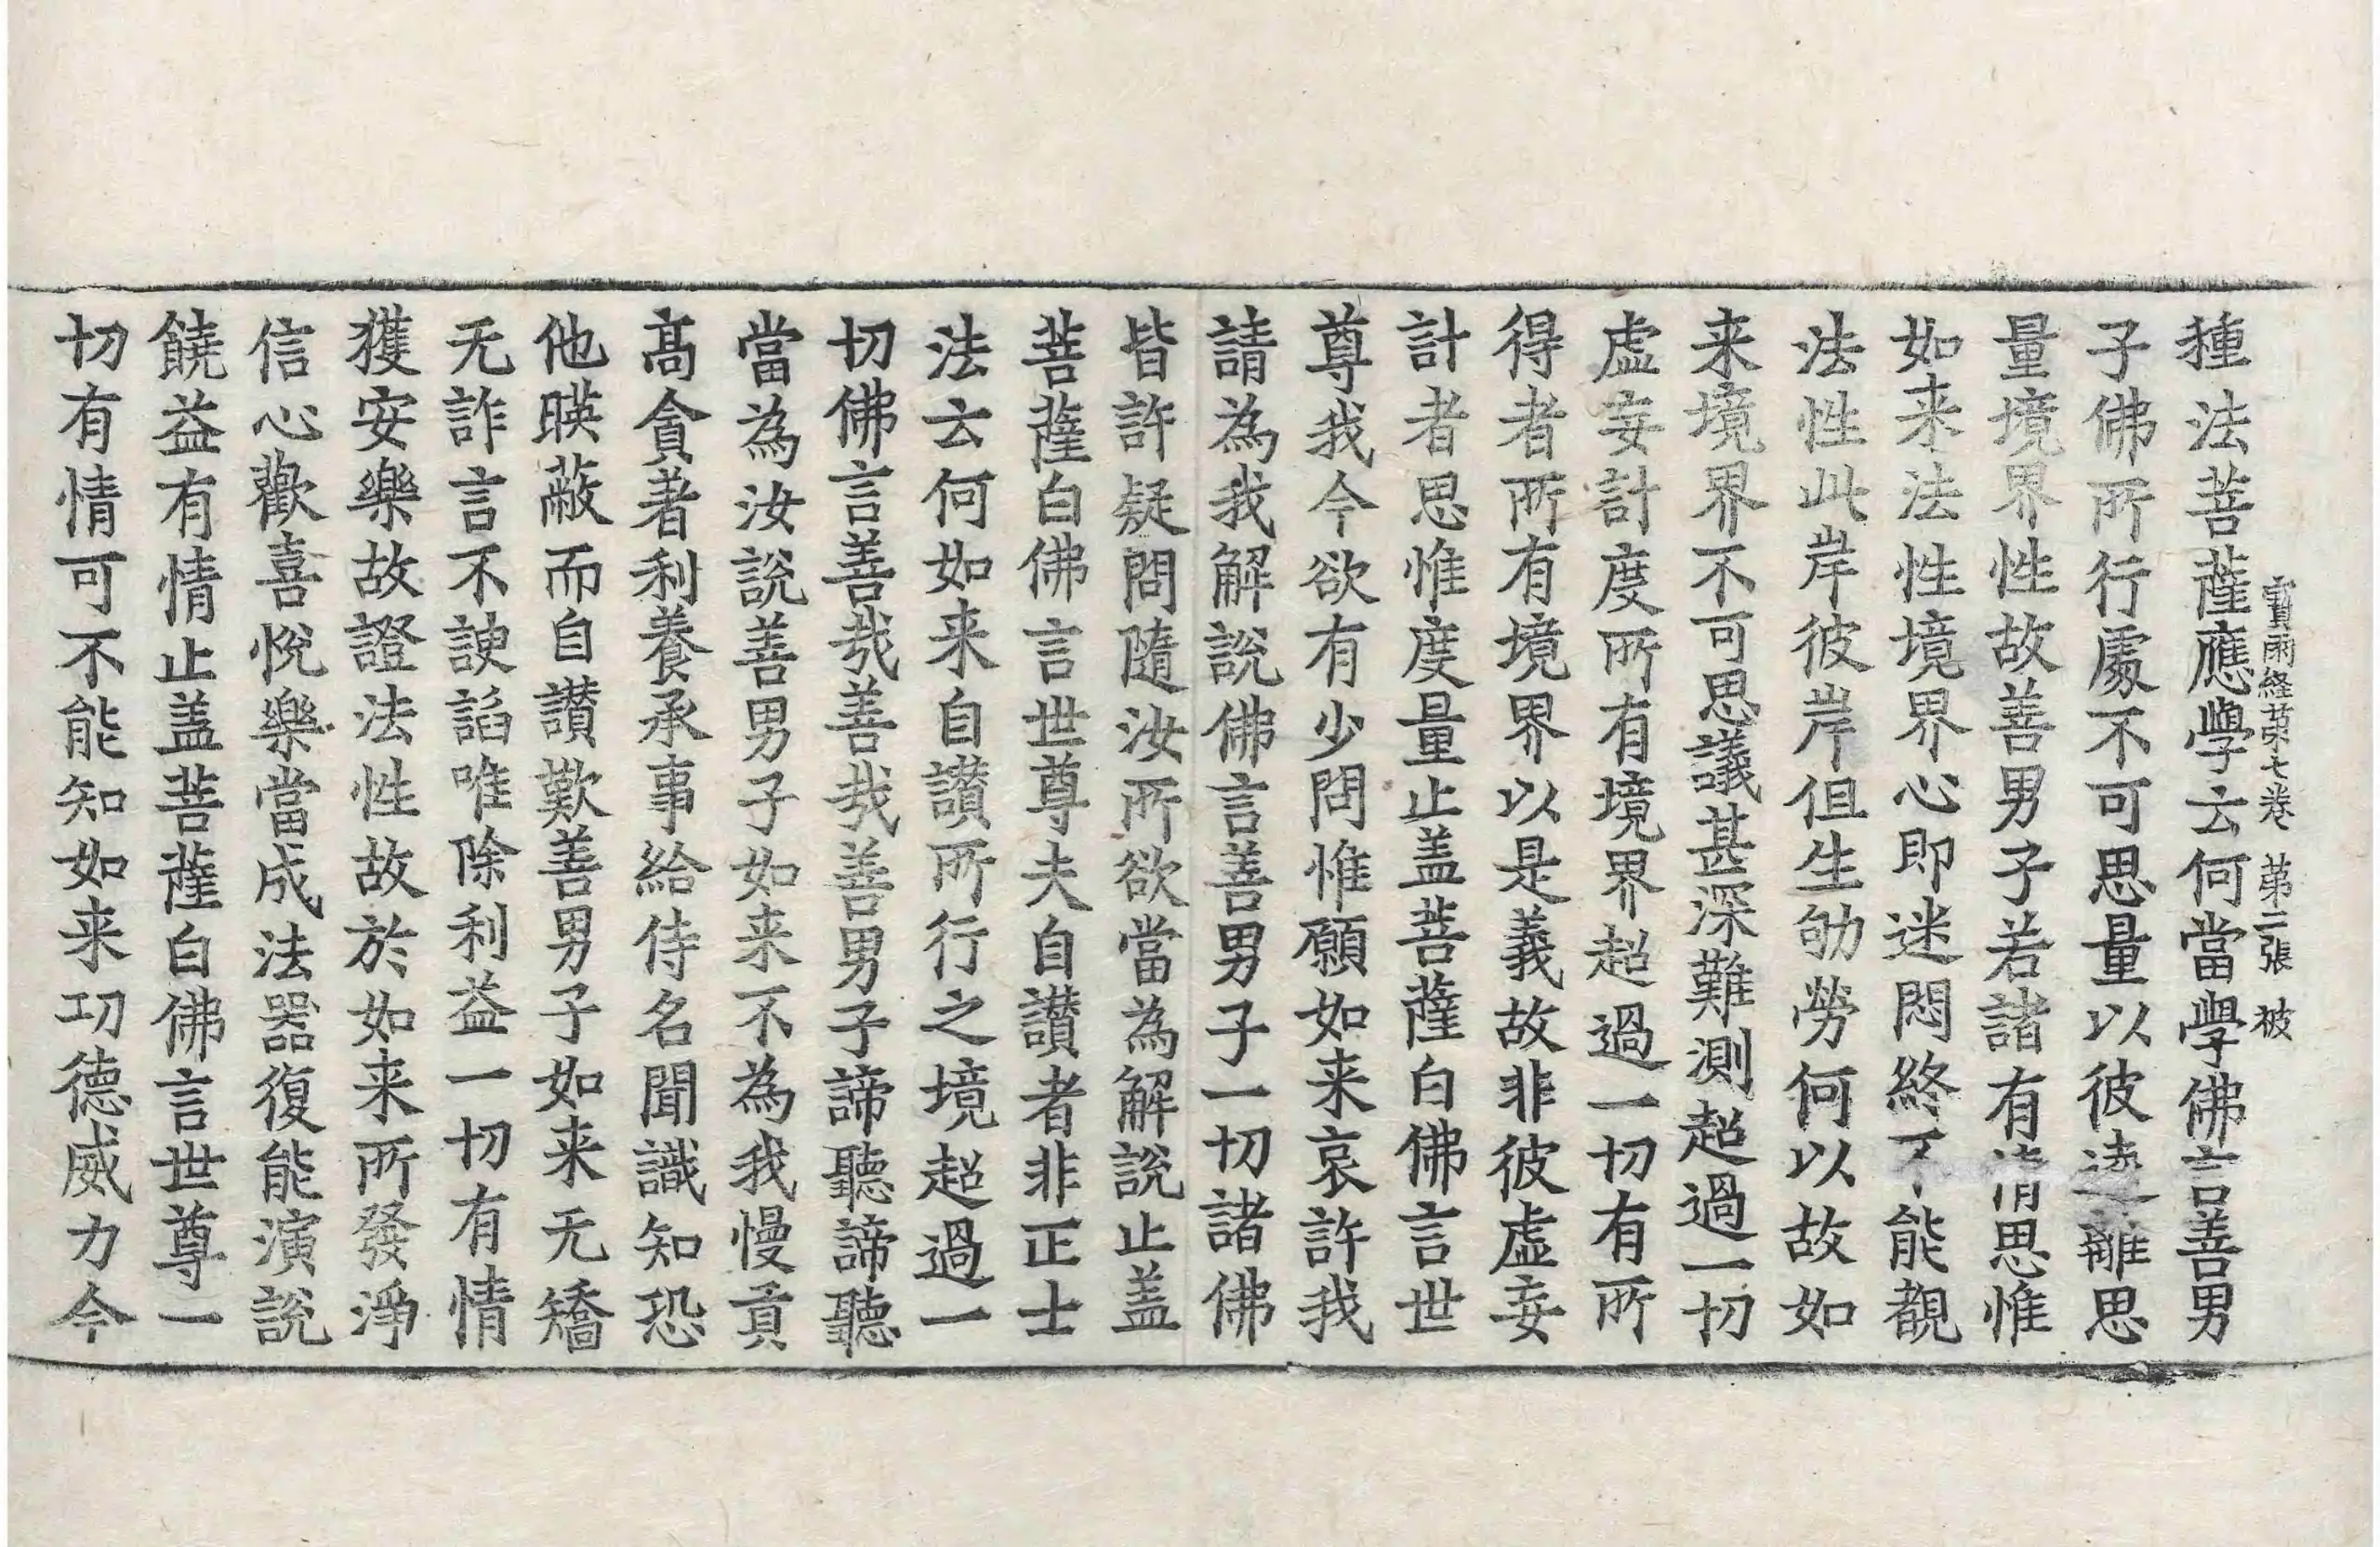 寶雨經第七卷 第二張 被
種法菩薩應學云何當學佛言善男
子佛所行處不可思量以彼遠離思
量境界性故善男子若諸有情思惟
如来法性境界心即迷悶終不能覩
法性此岸彼岸但生劬勞何以故如
来境界不可思議甚深難測超過一切
虛妄計度所有境界超過一切有所
得者所有境界以是義故非彼虛妄
計者思惟度量止盖菩薩白佛言世
尊我今欲有少問惟願如来哀許我
請為我解說佛言善男子一切諸佛
皆許疑問隨汝所欲當為解說止盖
菩薩白佛言世尊夫自讃者非正士
法云何如来自讃所行之境超過一
切佛言善哉善哉善男子諦聽諦聽
當為汝說善男子如来不為我慢貢
髙貪著利養承事給侍名聞識知恐
他暎蔽而自讃歎善男子如来无矯
无詐言不諛謟唯除利益一切有情
獲安樂故證法性故於如来所發淨
信心歡喜悅樂當成法器復能演說
饒益有情止盖菩薩白佛言世尊一
切有情可不能知如来功德威力今